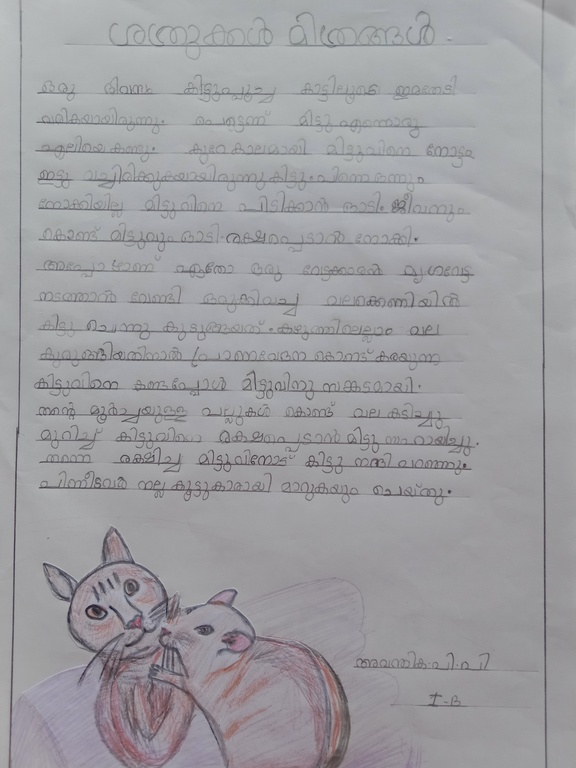 ശത്രുക്കൾ മിത്രങ്ങൾ.
ഒരു ദിവസം കിട്ടുപ്പൂച്ച കാട്ടിലൂടെ ഇരതേടി
വരികയായിരുന്നു. പെട്ടെന്ന് മിട്ടു എന്നൊരു
എലിയെ കണ്ടു. കുറേ കാലമായി മിട്ടുവിനെ നോട്ടം
ഇട്ടു വച്ചിരിക്കുകയായിരുന്നു കിട്ടു. പിന്നെ ഒന്നും
നോക്കിയില്ല മിട്ടുവിനെ പിടിക്കാൻ ഓടി. ജീവനും
കൊണ്ട് മിട്ടുവും ഓടി രക്ഷപ്പെടാൻ നോക്കി.
അപ്പോഴാണ് ഏതോ ഒരു വേട്ടക്കാരൻ മൃഗവേട്ട
നടത്താൻ വേണ്ടി ഒരുക്കിവച്ച വലക്കെണിയിൽ
കിട്ടു ചെന്നു കുടുങ്ങിയത്. കഴുത്തിലെല്ലാം വല
കുരുങ്ങിയതിനാൽ പ്രാണവേദന കൊണ്ട് കരയുന്ന
കിട്ടുവിനെ കണ്ടപ്പോൾ മിട്ടുവിനു സങ്കടമായി.
തന്റെ മൂർച്ചയുള്ള പല്ലുകൾ കൊണ്ട് വല കടിച്ചു
മുറിച്ച് കിട്ടുവിനെ രക്ഷപ്പെടാൻ മിട്ടു സഹായിച്ചു.
തന്നെ രക്ഷിച്ച മിട്ടുവിനോട് കിട്ടു നന്ദി പറഞ്ഞു.
പിന്നീടവർ നല്ല കൂട്ടുകാരായി മാറുകയും ചെയ്തു.
അവന്തിക.പി.പി
I-B